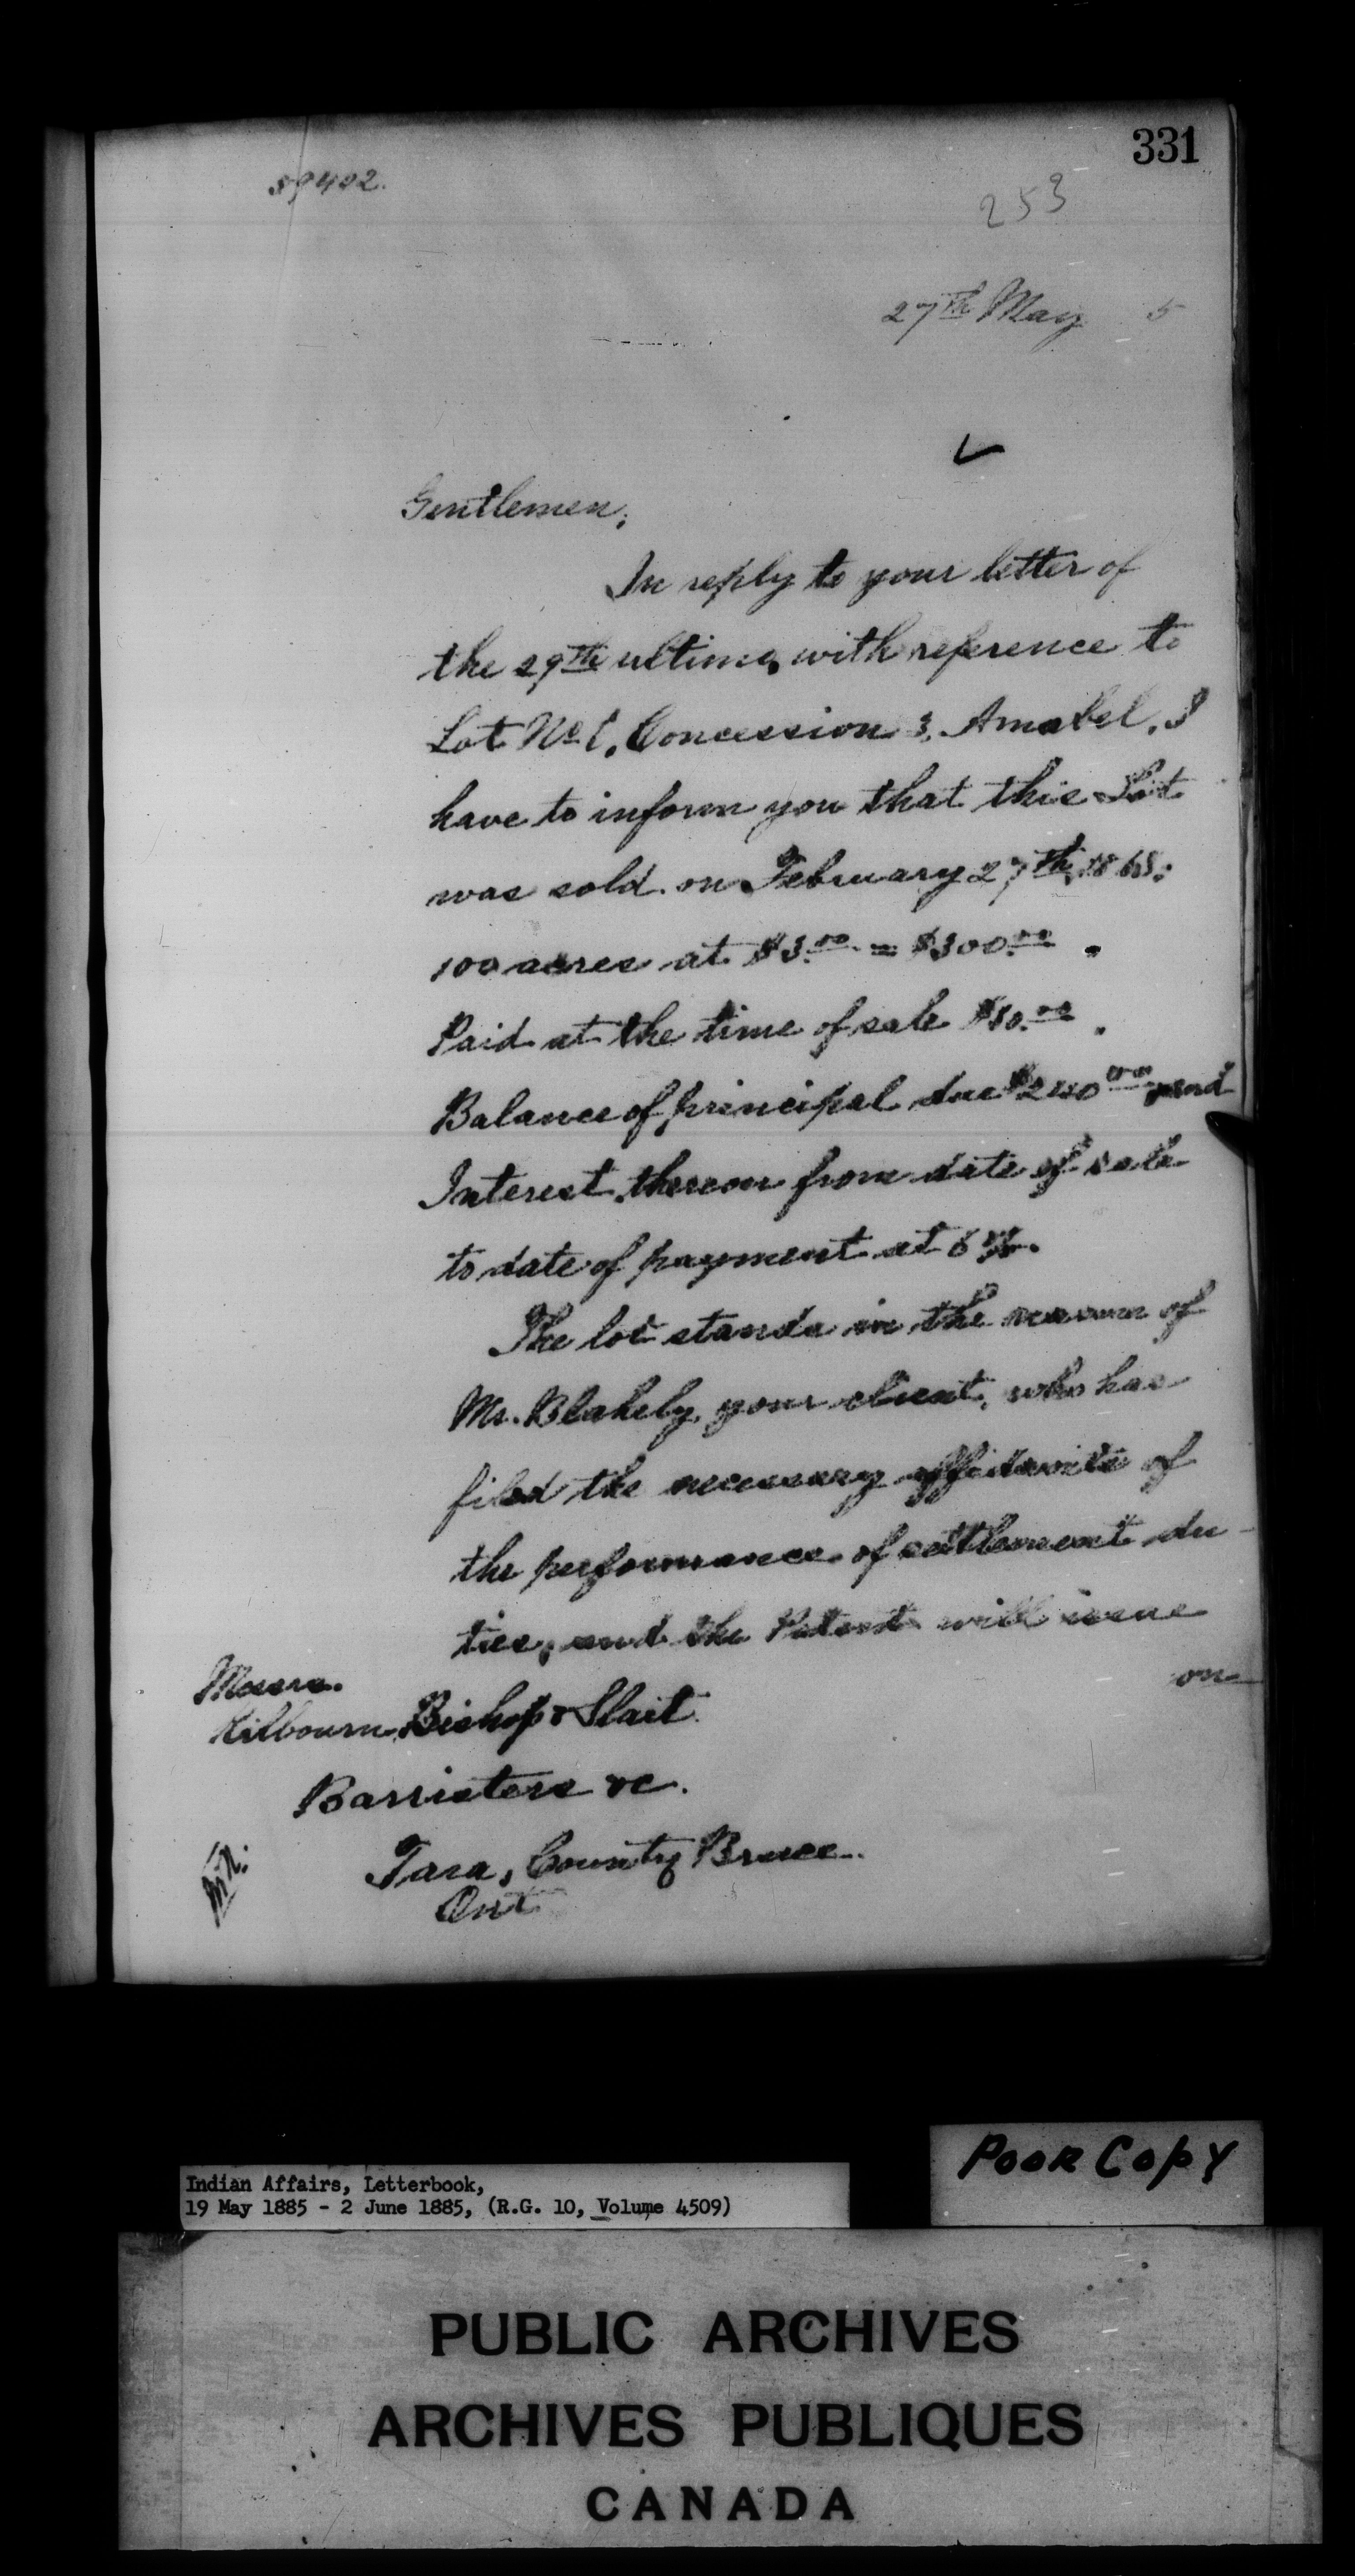 331
59402.
253
27th May 5
Gentlemen,
In reply to your letter of
the 29th ultimo, with reference to
Lot No 1, Concession 3, Amabel, I
have to inform you that this Lot
was sold on February 27th,
100 acres at $3.00 = $300.00.
Paid at the time of sale
Balance of principal due and
Interest thereon from date of sale
to date of payment at 6%.
The lot stands in the name of
Mr. Blakely, your client, who has
filed the necessary affidavits of
the performance of settlement du-
ties, and the Patent will issue
on
Messrs.
Kilbourn, Bishop &
Barristers &c.
Tara, County Bruce
Ont
Poor Copy
Indian Affairs, Letterbook,
19 May 1885 - 2 June 1885, (R.G. 10, Volume 4509)
PUBLIC ARCHIVES
ARCHIVES PUBLIQUES
CANADA